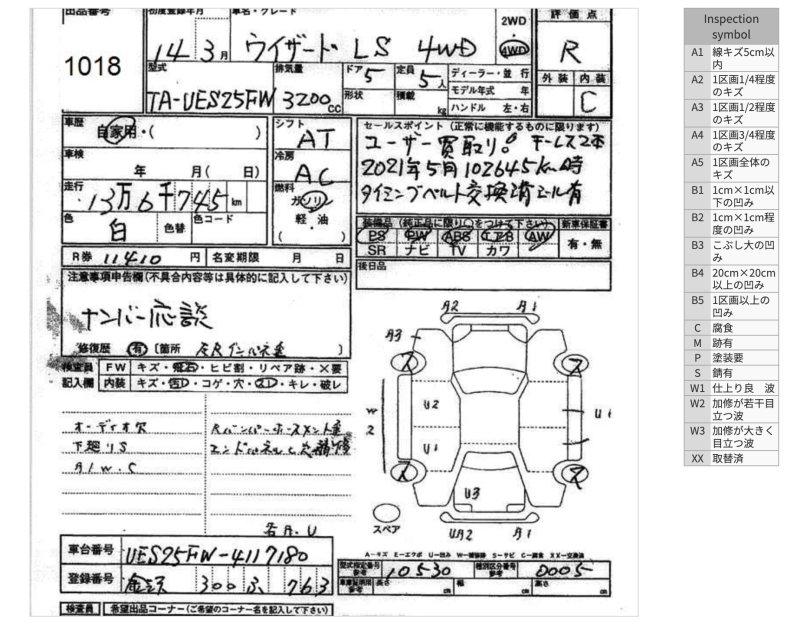 出品番号
初度登録年月
車名・グレード
1018
14年3月
ウイザード LS 4WD
2WD
4WD
評価点
R
型式
TA-UES25FW
排気量
3200cc
ドア
5
定員
5人
形状
積載
kg
ディーラー・並行
モデル年式 年
ハンドル 左・右
外装
内装
C
車歴
自家用・( )
シフト
AT
車検
年 月( 日)
冷房
AC
走行
13万6千745km
燃料
ガソリン
軽・油
( )
色
白
色替
色コード
セールスポイント (正常に機能するものに限ります)
ユーザー買取り。キーレス2本
2021年5月102645km時
タイミングベルト交換済シール有
装備品 (純正品に限り○をつけて下さい)
新車保証書
PS PW ABS エアB AW
SR ナビ TV カワ
有・無
R券 11410円
名変期限 月 日
後日品
注意事項申告欄(不具合内容等は具体的に記入して下さい)
ナンバー応談
修復歴 有 〔箇所
検査員
記入欄
FW キズ・飛石・ヒビ割・リペア跡・×要
内装 キズ・凹・コゲ・穴・スレ・キレ・破レ
オーディオ穴
下廻りS
A1
W.C
A2 A1
A3
U2
U1
W
2
U1
U3
UA2 A1
スペア
A-キズ E-エクボ U-凹み W-補修跡 S-サビ C-腐食 XX-交換済
車台番号
UES25FW-4117180
登録番号
300 ふ 763
型式指定番号
参考
10530
類別区分番号
参考
0005
長さ cm
幅 cm
高さ cm
検査員
希望出品コーナー(ご希望のコーナー名を記入して下さい)
Inspection symbol
A1 線キズ5cm以内
A2 1区画1/4程度のキズ
A3 1区画1/2程度のキズ
A4 1区画3/4程度のキズ
A5 1区画全体のキズ
B1 1cm×1cm以下の凹み
B2 1cm×1cm程度の凹み
B3 こぶし大の凹み
B4 20cm×20cm以上の凹み
B5 1区画以上の凹み
C 腐食
M 跡有
P 塗装要
S 錆有
W1 仕上り良 波
W2 加修が若干目立つ波
W3 加修が大きく目立つ波
XX 取替済